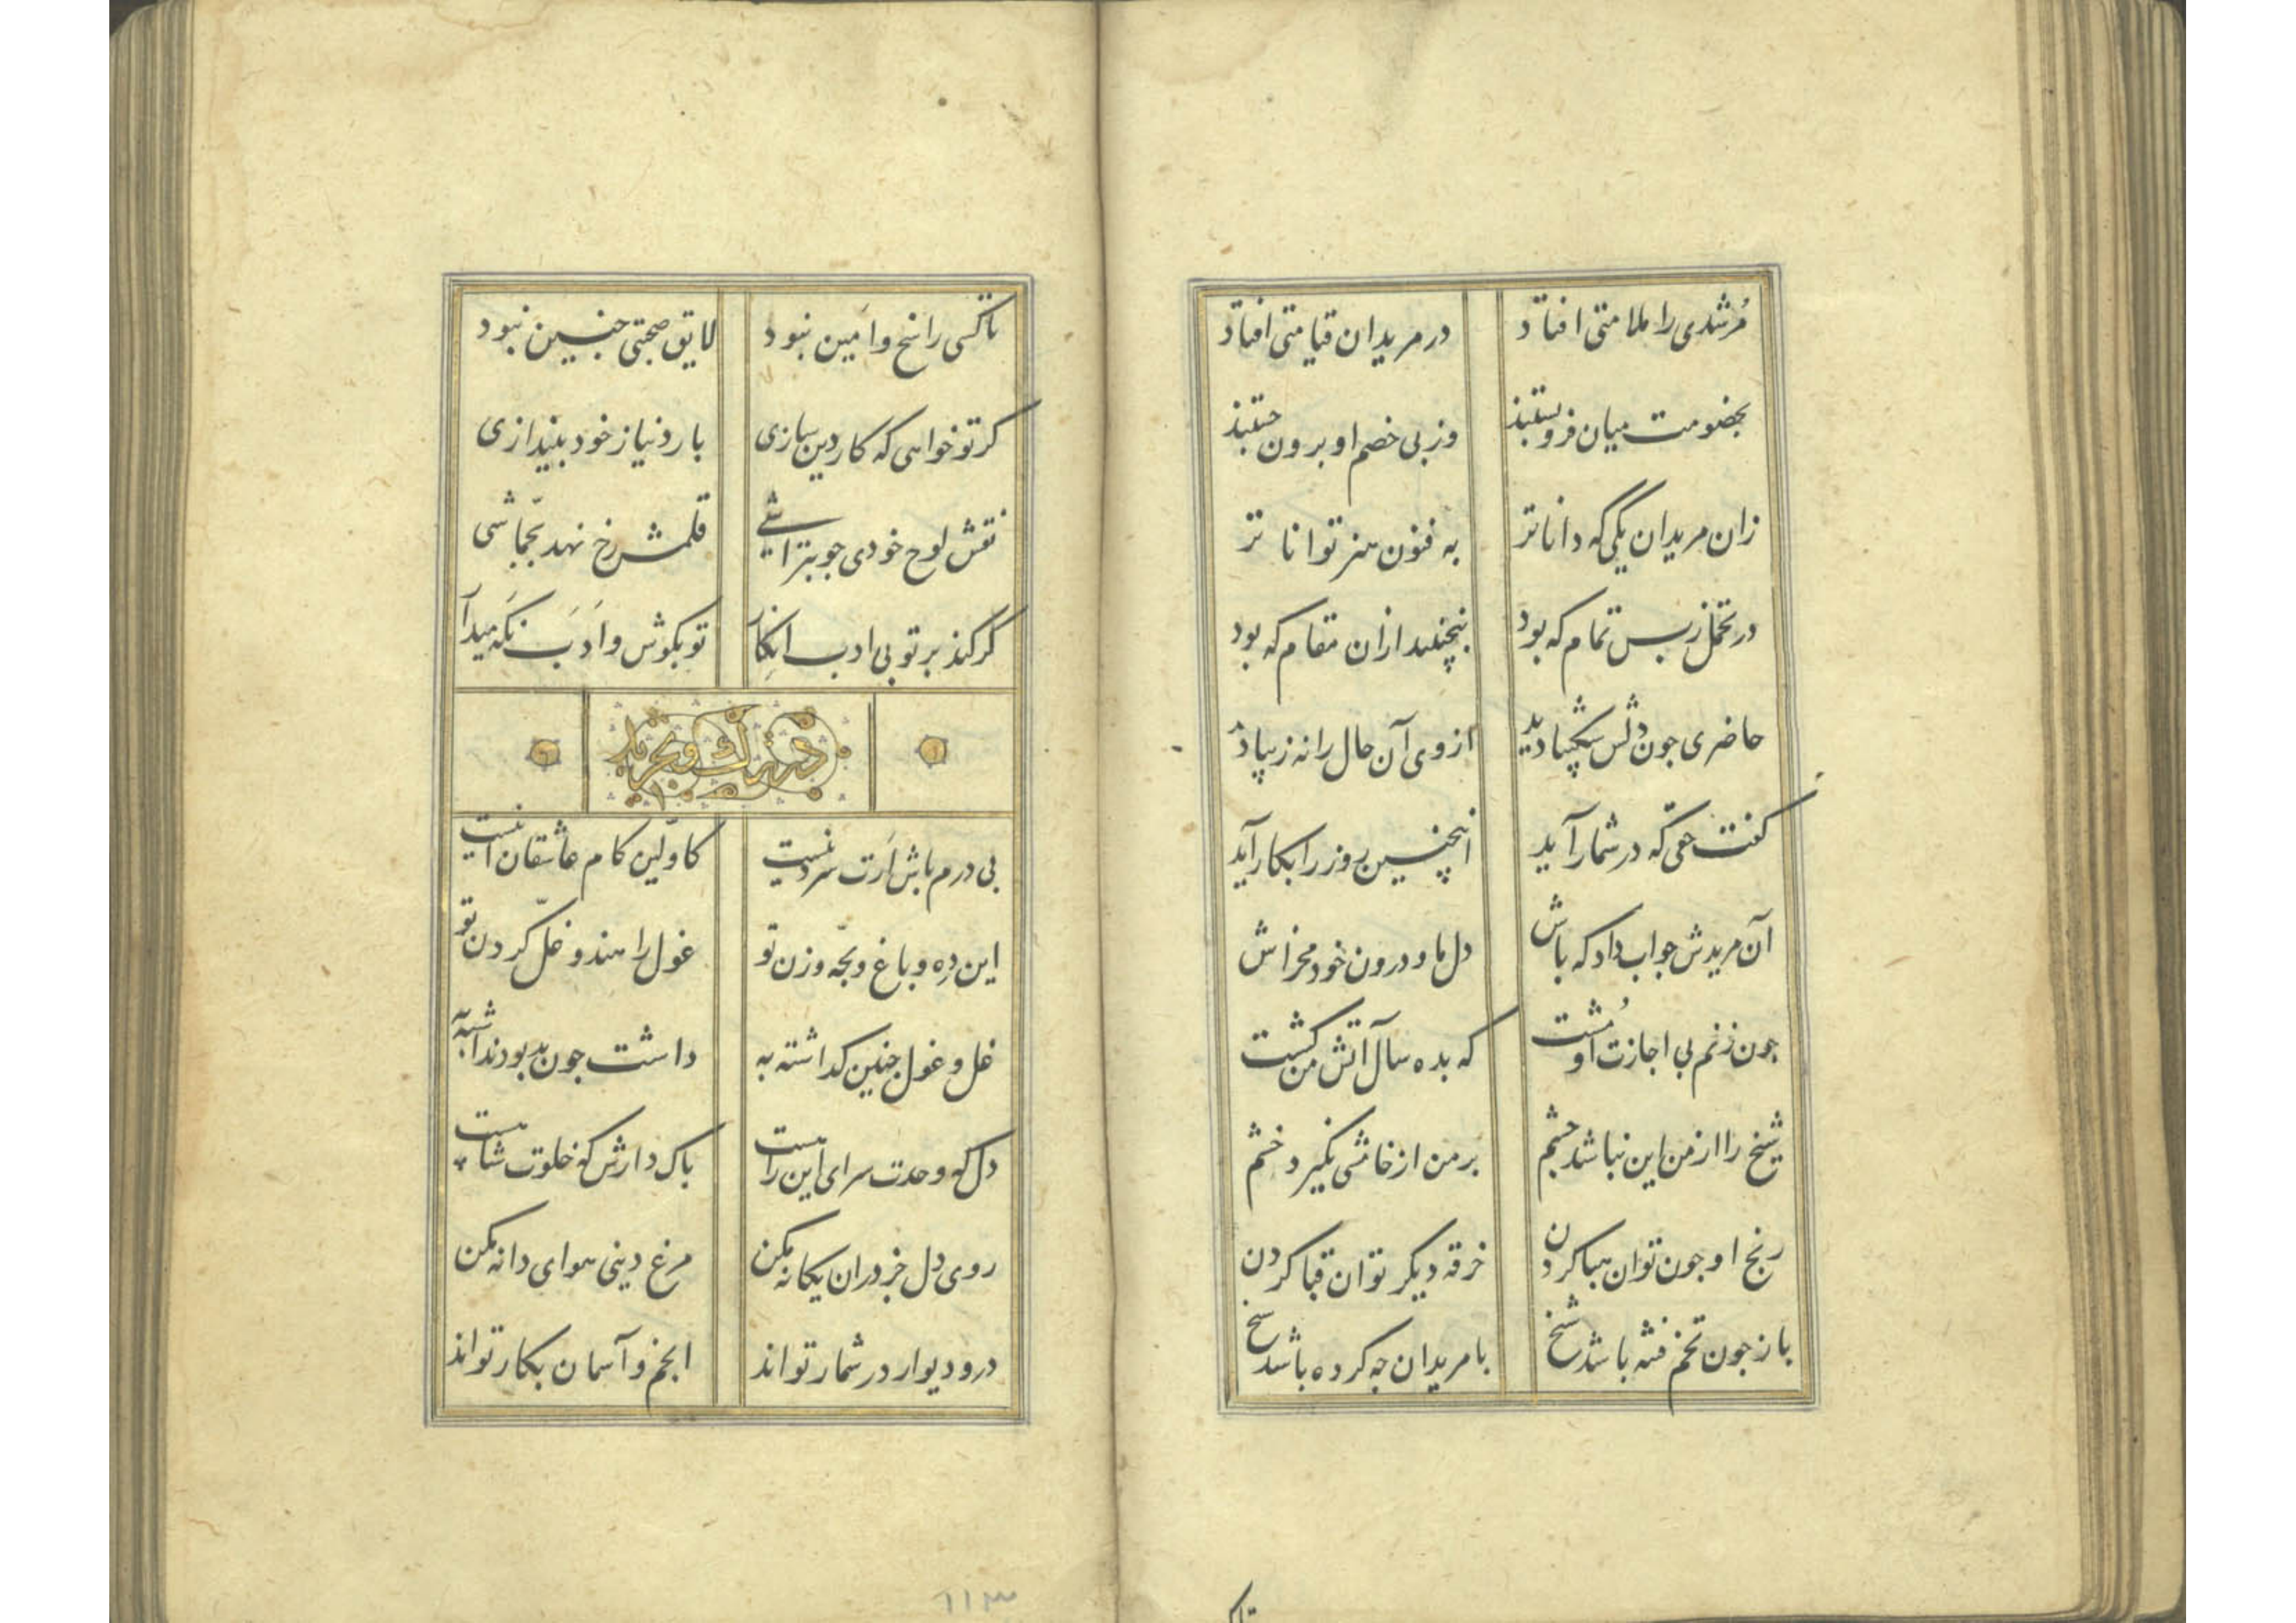 مُرشدی را ملامتی افتاد در مریدان قیامتی افتاد
بخصومت میان فروبستند وز بی خصم او برون جستند
زان مریدان یکی که داناتر به فنون هنر تواناتر
در تحمل ز بس تمام که بود نجنبید ازان مقام که بود
حاضری جون دلش شکیبا دید از وی آن حال را نه زیبا دید
کفت حقی که در شمار آید اینچنین روز را بکار آید
آن مریدش جواب داد که باش دل ما و درون خود مخراش
جون زنم بی اجازت او مُشت که بده سال آتش من کشت
شیخ را از من این نباشد جشم بر من از خامشی نکیرد خشم
رنج او جون توان هبا کردن خرقه دیکر توان قبا کردن
باز جون تخم فتنه باشد شیخ با مریدان جه کرده باشد شیخ
تاکسی راسخ و امین نبود لایق صحبتی جنین نبود
کر تو خواهی که کار دین سازی بار دنیا ز خود بیندازی
نقش لوح خودی جو بتراشی قلمش رخ نهد بجماشی
کر کند بر تو بی ادب انکار تو بکوش و ادب نکه میدار
در ترک و تجرید
بی درم باش ارت سر دینست کاولین کام عاشقان اینست
این دِه و باغ و بجه و زن تو غول راهند و غل کردن تو
غل و غول جنین کداشته به داشت جون بد بود نداشته به
دل که وحدت سرای این راهست باک دارش که خلوت شاهست
روی دل جز دران یکانه مکن مرغ دینی هوای دانه مکن
در و دیوار در شمار تواند انجم و آسمان بکار تواند
تاکسی
٦١١٣